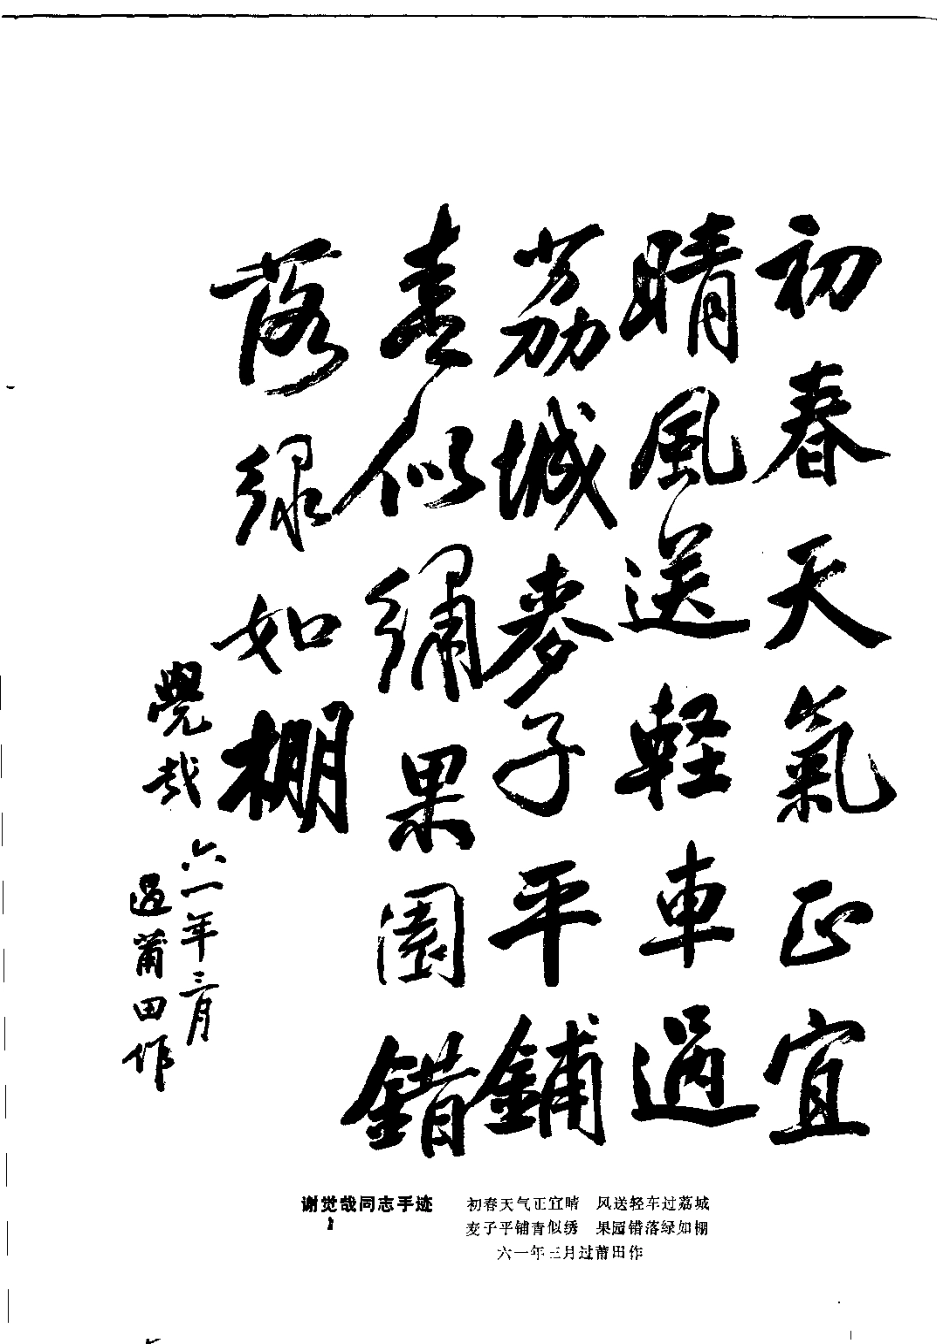 初春天氣正宜
晴風送軽車過
荔城麥子平鋪
青似繡果園錯
落绿如棚
覺哉
六一年三月
過莆田作
谢觉哉同志手迹
初春天气正宜晴 风送轻车过荔城
麦子平铺青似绣 果园错落绿如棚
六一年三月过莆田作